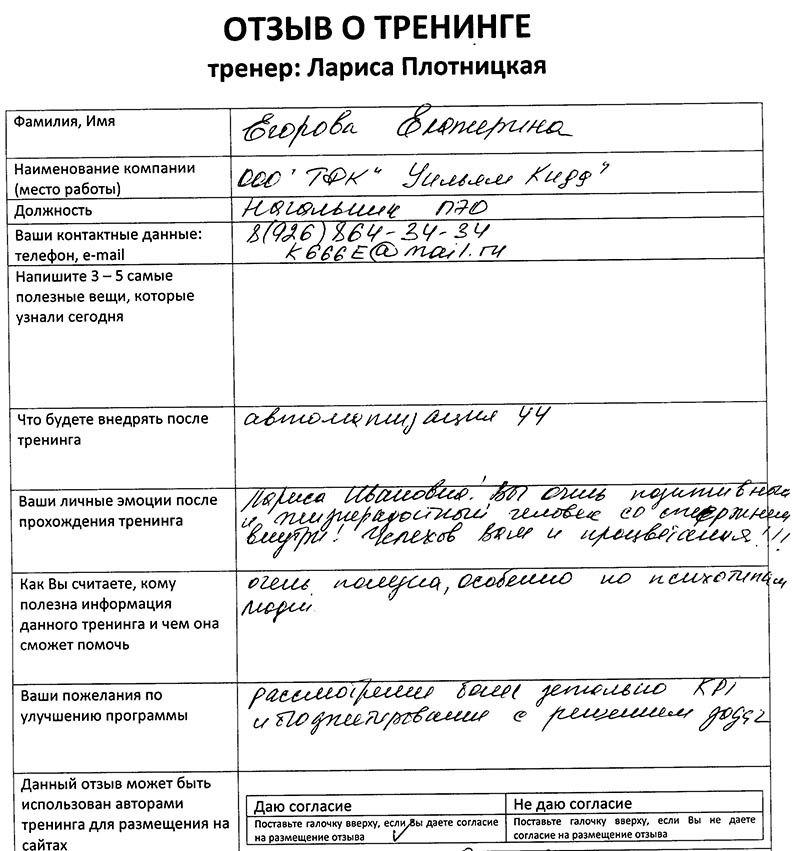 ОТЗЫВ О ТРЕНИНГЕ
тренер: Лариса Плотницкая
Фамилия, Имя
Егорова Екатерина
Наименование компании
(место работы)
ООО "ТФК" Уильям Кидд"
Должность
Начальник ПЭО
Ваши контактные данные:
телефон, e-mail
8(926) 864-34-34
K666E@mail.ru
Напишите 3 – 5 самые
полезные вещи, которые
узнали сегодня
Что будете внедрять после
тренинга
автоматизация УУ
Ваши личные эмоции после
прохождения тренинга
Лариса Ивановна! Вы очень позитивный
и жизнерадостный человек со стержнем
внутри! Успехов Вам и процветания!!!
Как Вы считаете, кому
полезна информация
данного тренинга и чем она
сможет помочь
очень полезна, особенно по психотипам
людей.
Ваши пожелания по
улучшению программы
рассмотрение более детально KPI
и бюджетирования с решением задач
Данный отзыв может быть
использован авторами
тренинга для размещения на
сайтах
Даю согласие
Не даю согласие
Поставьте галочку вверху, если Вы даете согласие
на размещение отзыва
Поставьте галочку вверху, если Вы не даете
согласие на размещение отзыва